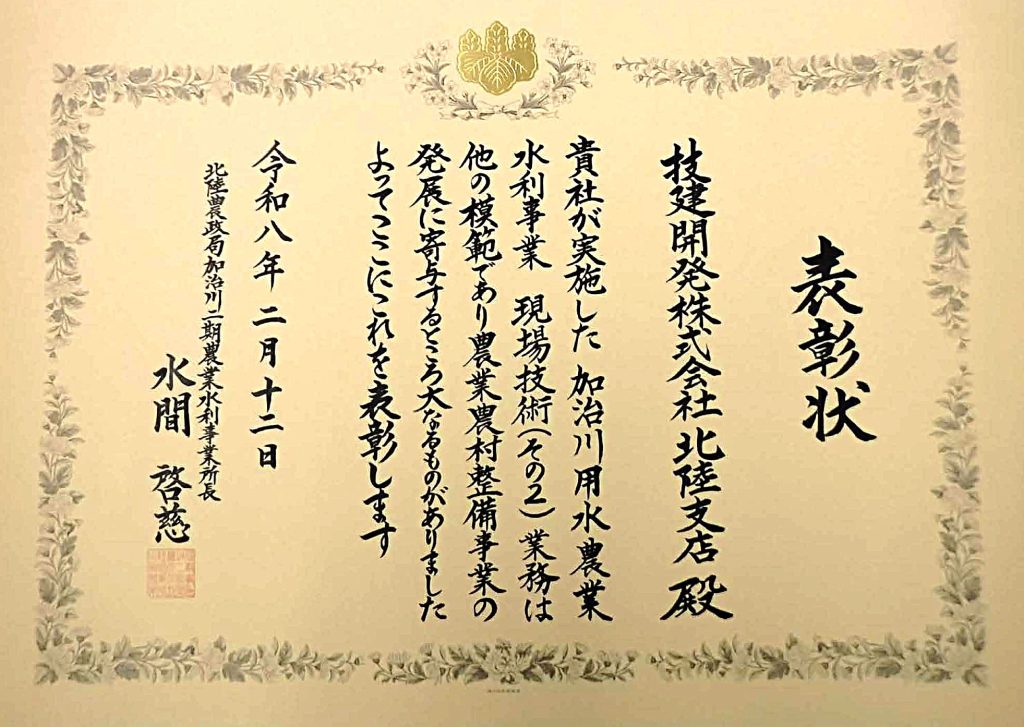 表彰状
技建開発株式会社 北陸支店 殿
貴社が実施した 加治川用水農業
水利事業 現場技術(その2)業務は
他の模範であり農業農村整備事業の
発展に寄与するところ大なるものがありました
よってここにこれを表彰します
令和八年 二月十二日
北陸農政局加治川二期農業水利事業所長
水間 啓慈